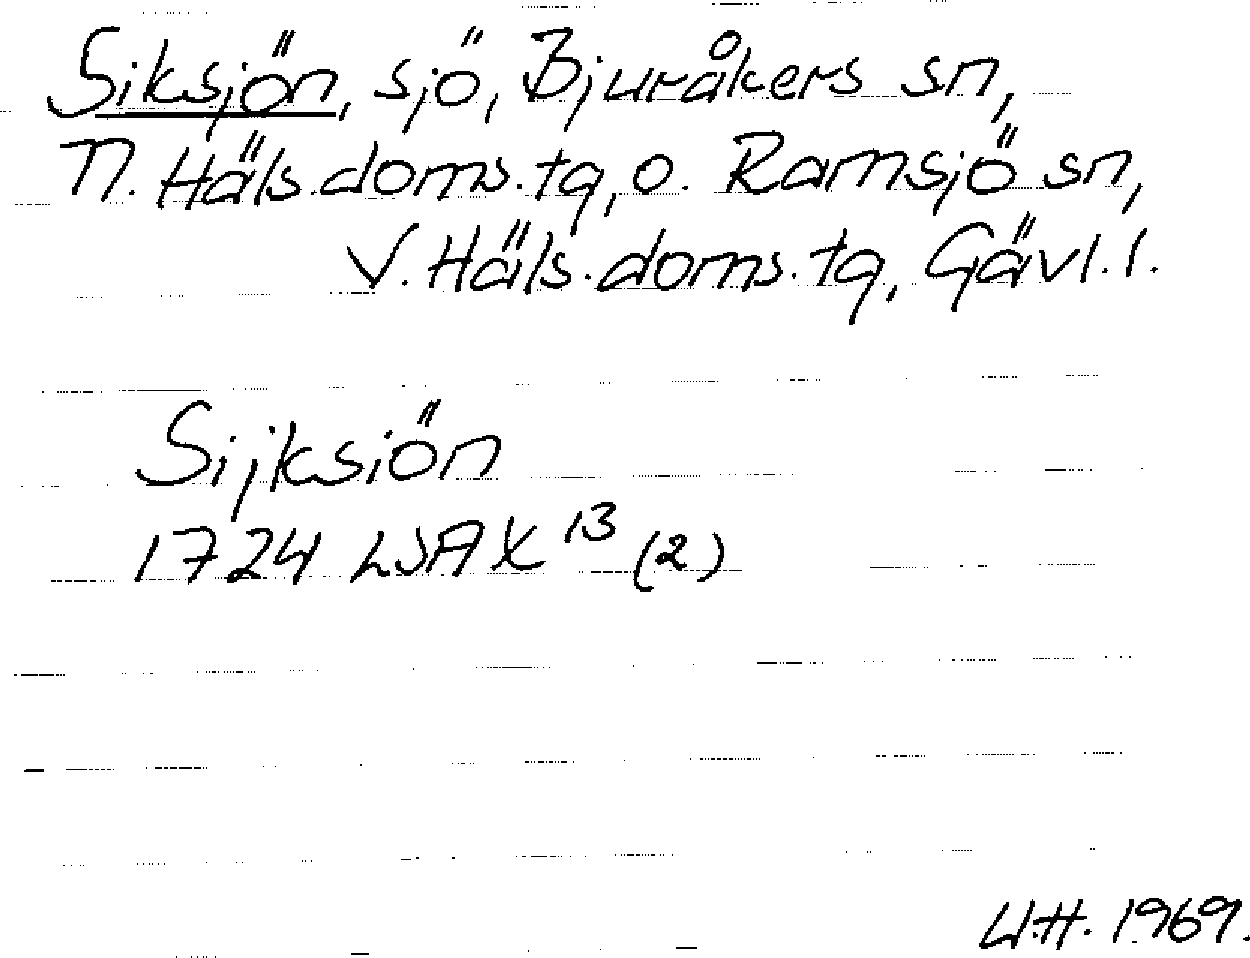 Siksjön, sjö, Bjuråkers sn,
N. Häls. doms. tg, o. Ramsjö sn,
V. Häls. doms. tg, Gävl. l.
Sijksiön
1724 LSA X 13 (2)
U.H. 1969.